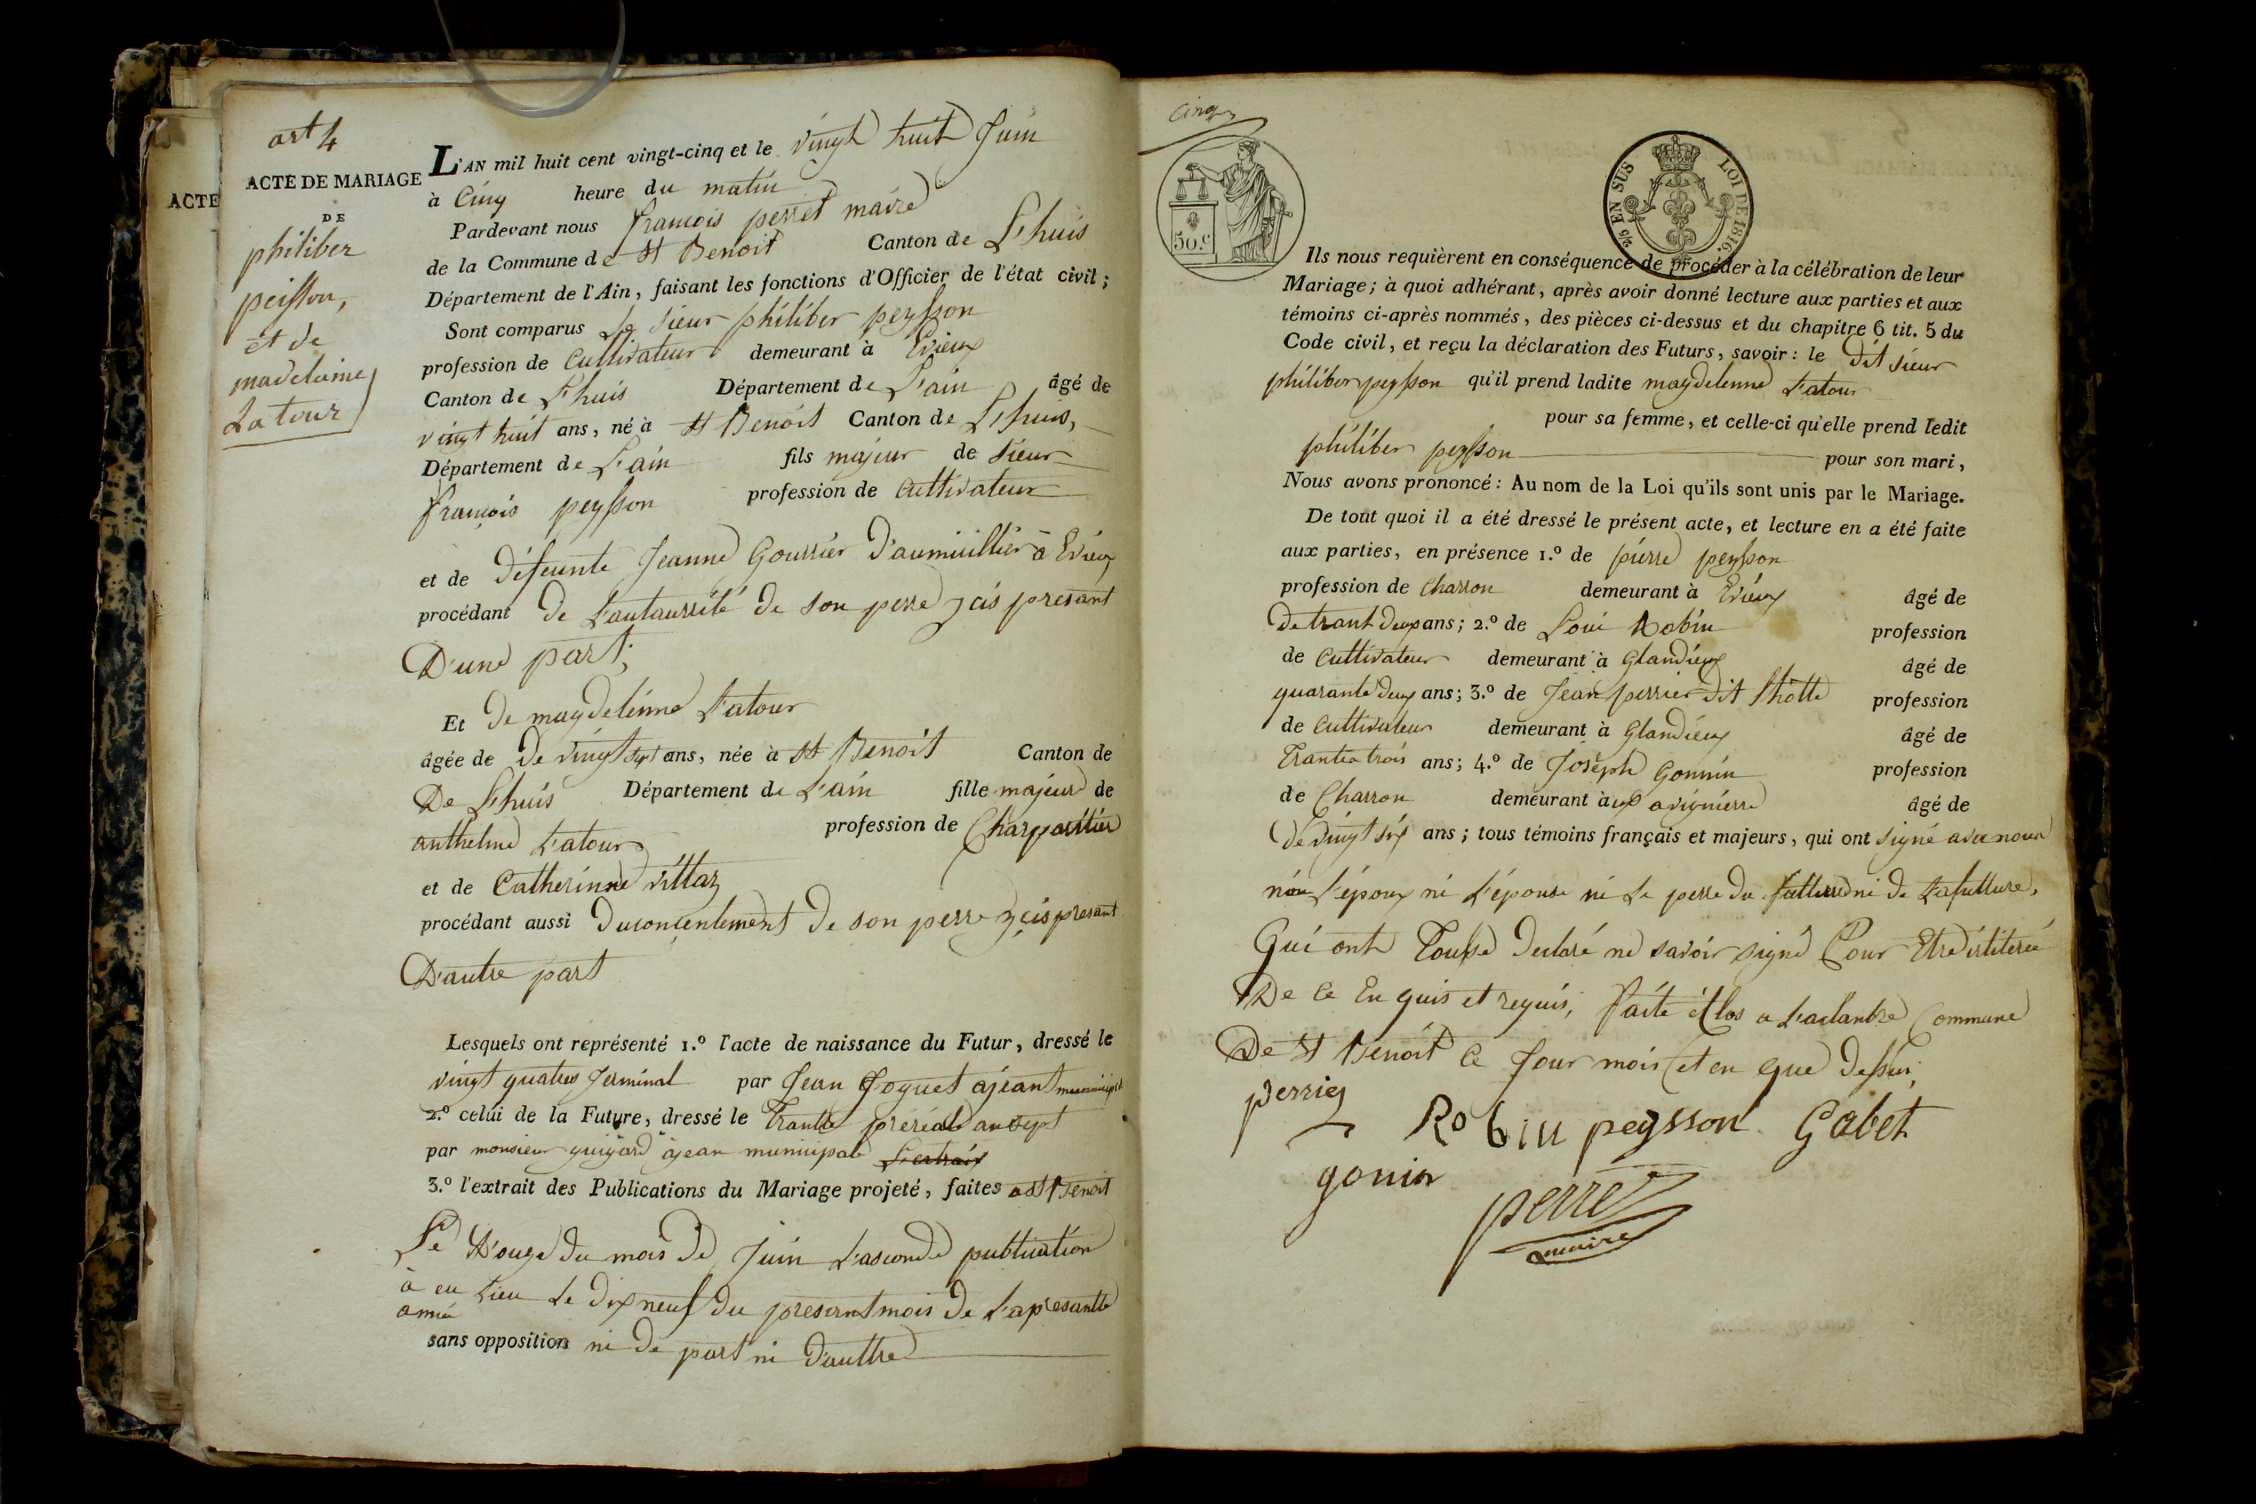 art 4
ACTE DE MARIAGE
DE
philiber
peisson,
et de
madelaine
Latour
ACTE
L'AN mil huit cent vingt-cinq et le vingt huit Juin
à Cinq heure du matin
Pardevant nous francois perret maire
de la Commune de St Benoit Canton de L'huis
Département de l'Ain, faisant les fonctions d'Officier de l'état civil ;
Sont comparus Le sieur philiber peysson
profession de Cultivateur demeurant à Evieux
Canton de L'huis Département de L'ain âgé de
vingt huit ans, né à St Benoit Canton de L'huis,
Département de L'ain fils majeur de sieur
françois peysson profession de Cultivateur
et de défeunte Jeanne Gourrier à Evieux
procédant de L'autaurrité de son perre ycis presant
D'une part,
Et de magdelenne Latour
âgée de De vingt sept ans, née à St Benoit Canton de
De L'huis Département de L'ain fille majeure de
anthelme Latour profession de Charpantier
et de Catherinne vittaz
procédant aussi Duconçentement De son perre ycis presant
D'autre part
Lesquels ont représenté 1.º l'acte de naissance du Futur, dressé le
vingt quatres Jerminal par Jean Joguet ajeant municipal
2.º celui de la Future, dressé le Trantte preréale an sept
par monsieur guigard ajean municipale L'extrait
3.º l'extrait des Publications du Mariage projeté, faites a St Benoit
Le D'ouze du mois de Juin L'aseconde publication
à eu Lieu Le dixneuf du presant mois de L'apresantte
année
sans opposition ni de part ni d'auttre
cinq
50.c
2/10 EN SUS LOI DE 1816.
Ils nous requièrent en conséquence de procéder à la célébration de leur
Mariage ; à quoi adhérant, après avoir donné lecture aux parties et aux
témoins ci-après nommés, des pièces ci-dessus et du chapitre 6 tit. 5 du
Code civil, et reçu la déclaration des Futurs, savoir : le dit sieur
philiber peysson qu'il prend ladite magdelenne Latour
pour sa femme, et celle-ci qu'elle prend ledit
philiber peysson pour son mari,
Nous avons prononcé : Au nom de la Loi qu'ils sont unis par le Mariage.
De tout quoi il a été dressé le présent acte, et lecture en a été faite
aux parties, en présence 1.º de pierre peysson
profession de Charron demeurant à Evieux âgé de
De trant deux ans ; 2.º de Loui Robin profession
de Cultivateur demeurant à Glandieux âgé de
quarante deux ans ; 3.º de Jean perrier dit Lhotte profession
de Cultivateur demeurant à Glandieux âgé de
Trantea trois ans ; 4.º de Joseph Gonnin profession
de Charron demeurant à aux avignierre âgé de
De vingt six ans ; tous témoins français et majeurs, qui ont signé avec nous
non L'époux ni L'épouse ni Le perre du futture ni de Lafutture,
Qui ont Tousse declaré ne savoir signé Pour Etre
De Ce En quis et requis, faite et Clos a Commune
De St Benoit Ce Jour mois et en que dessus,
perrier
Robin peysson Gabet
gonin
perret
maire